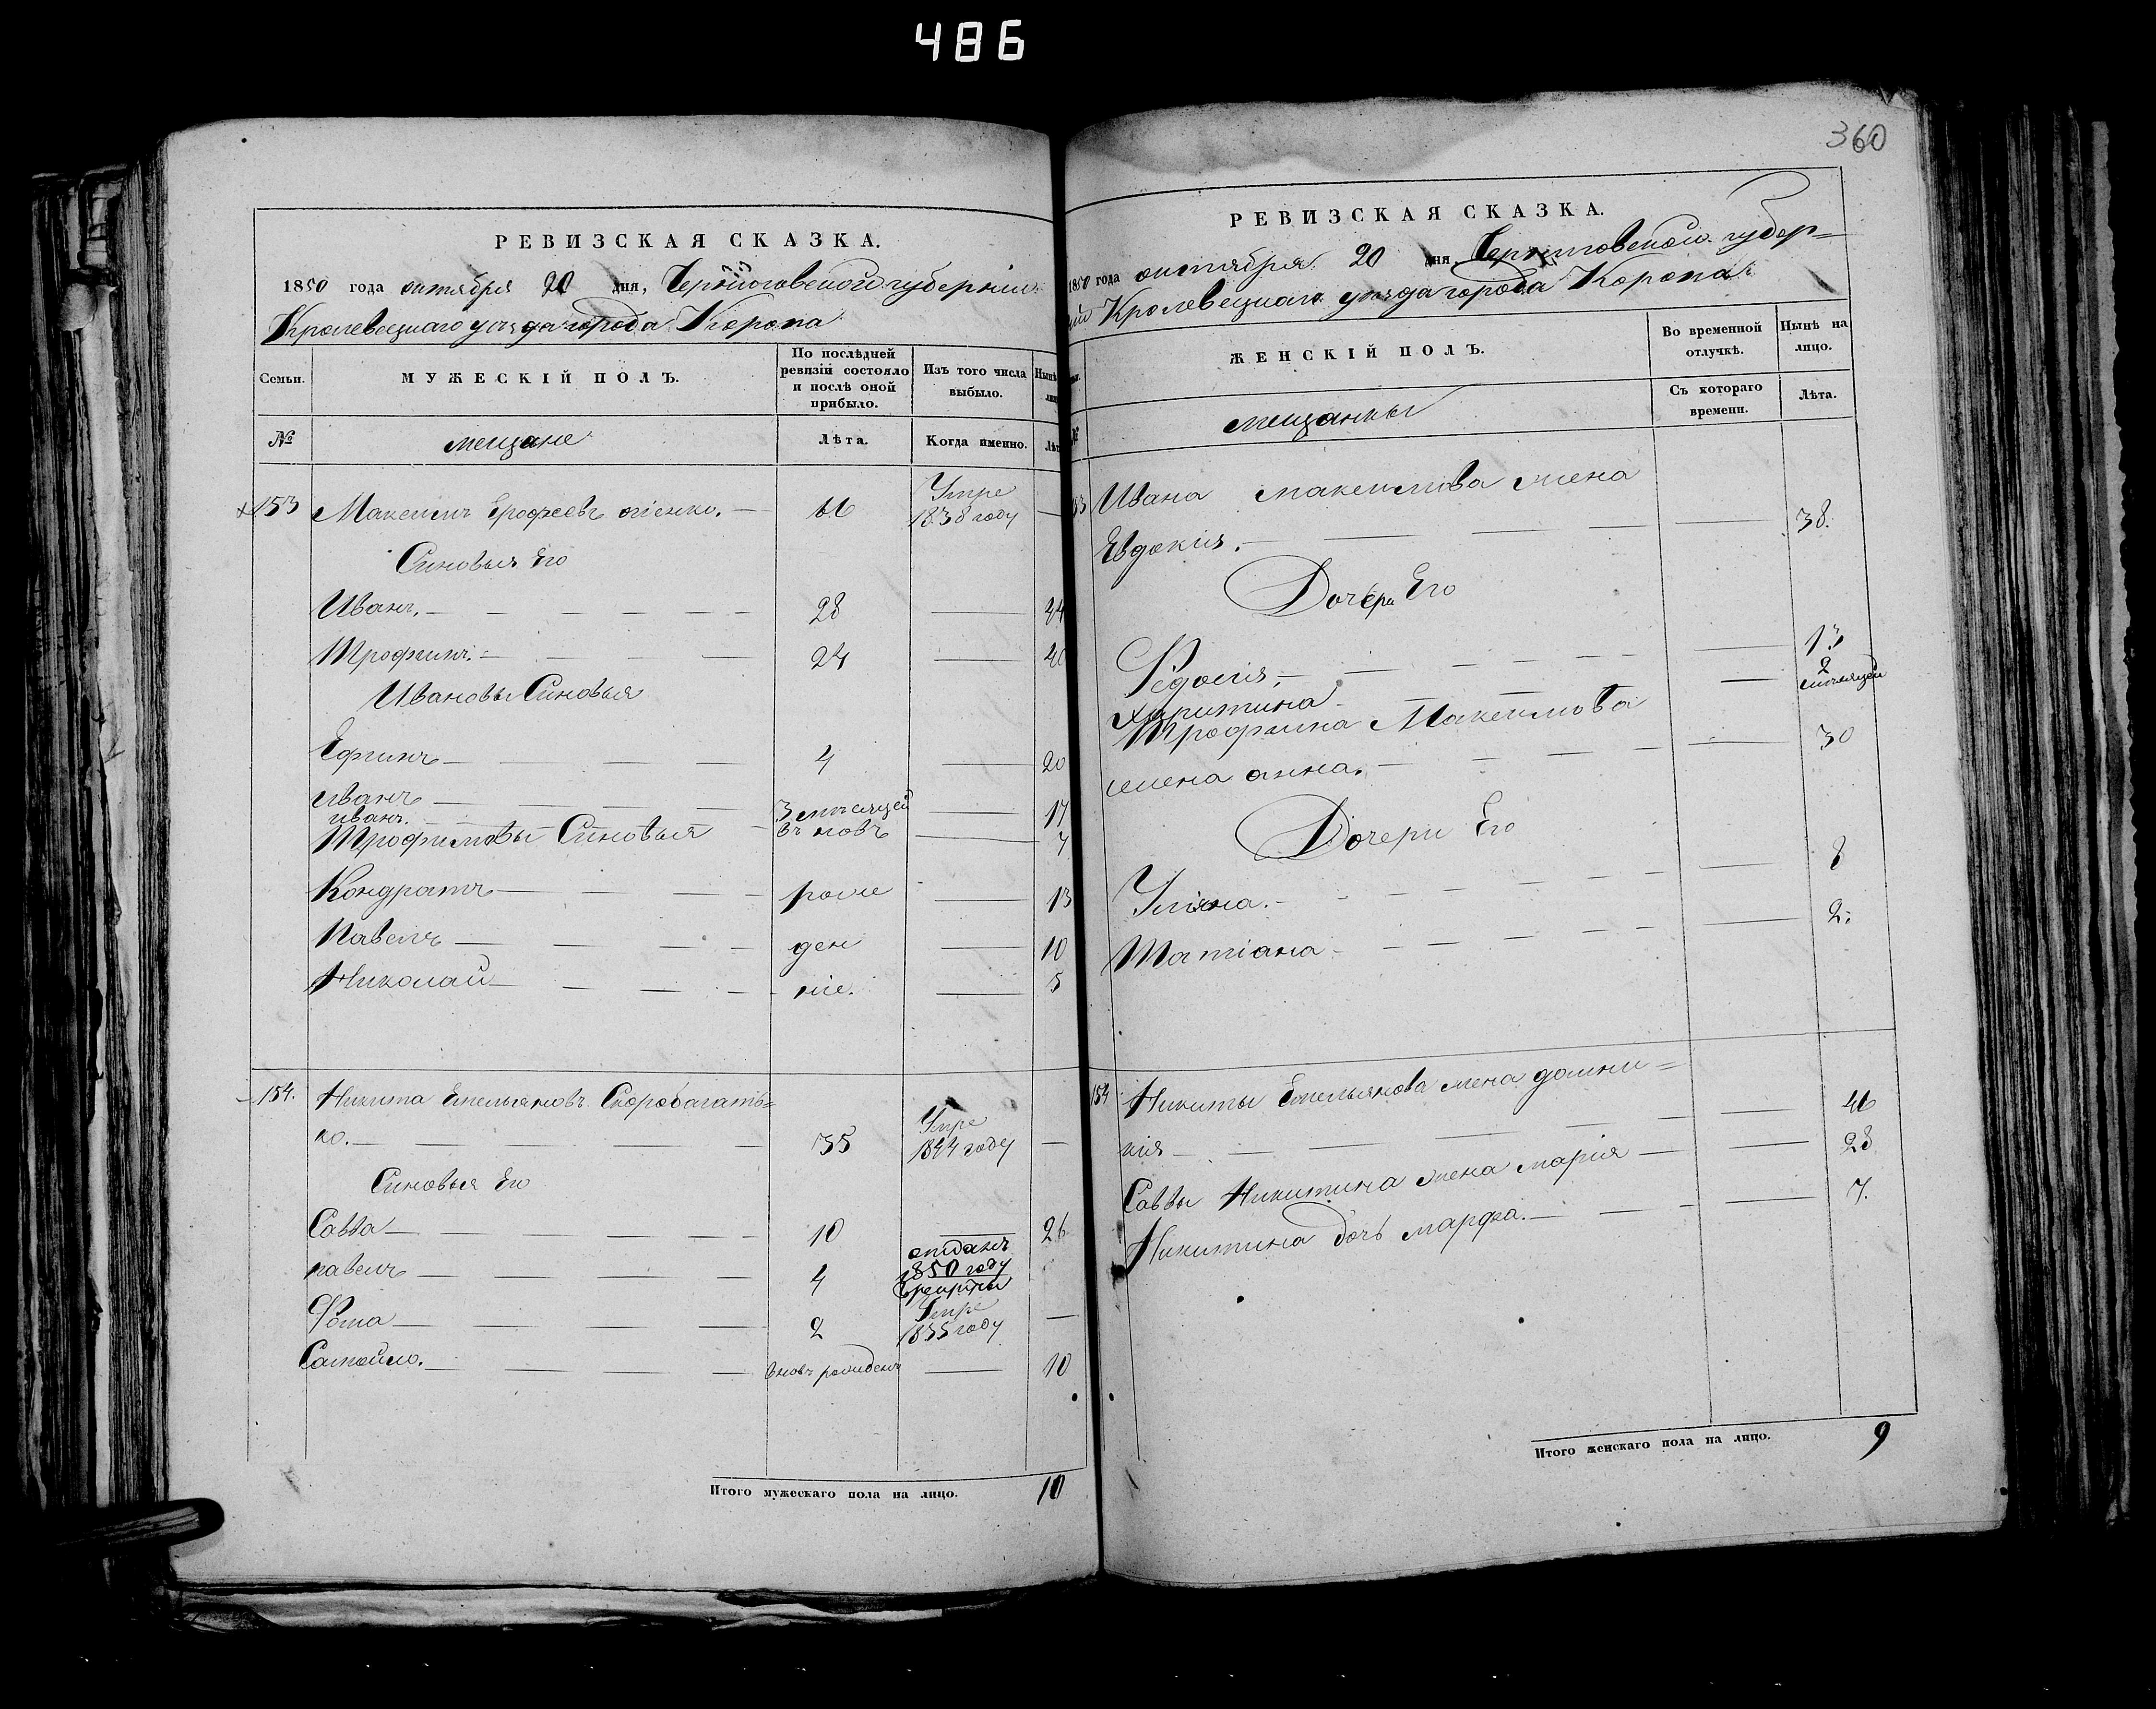 486
РЕВИЗСКАЯ СКАЗКА.
1850 года октября 20 дня, Черниговской губерніи
Кролевецкаго уезда города Коропа
Семьи.
МУЖЕСКІЙ ПОЛЪ.
По послѣдней ревизіи состояло и послѣ оной прибыло.
Изъ того числа выбыло.
Нынѣ
№
мещане
Лѣта.
Когда именно.
Лѣт
153 Максимъ Ерофеевъ — Умре 1838 году —
Синовья Его
Иванъ. — 28 — 44
Трофимъ. — 24 — 40
Ивановы Синовья
Ефимъ — 4 — 20
Иванъ — 3 месяцей — 17
иванъ. — въ новъ — 7
Трофимовы Синовья
Кондратъ — рож — 13
Павелъ — ден — 10
Николай — ніе. — 5
154. Никита Емельяновъ Скоробагать=
ко. — 35 Умре 1844 году —
Синовья Его
Савва — 10 — 26
павелъ — 4 отданъ 1850 году
Фома — 2 Умре 1835 году —
Самойло. — вновъ рожденъ — 10
Итого мужескаго пола на лицо. 10
360
РЕВИЗСКАЯ СКАЗКА.
1850 года октября 20 дня Черниговской губер=
ніи Кролевецкаго уезда города Коропа
ЖЕНСКІЙ ПОЛЪ.
Во временной отлучкѣ.
Нынѣ на лицо.
№
мещанки
Съ котораго времени.
Лѣта.
Ивана максимова жена
Евдокия. — 38.
Дочери Его
Федосия, — 13
Харитина — 2 месяцей
Трофима Максимова
жена анна. — 30
Дочери Его
Уляна. — 8
Татіана — 2.
154 Никиты Емельянова жена домни=
кия — 46
Саввы Никитина жена марія — 23
Никитина дочь марфа. — 7.
Итого женскаго пола на лицо. 9